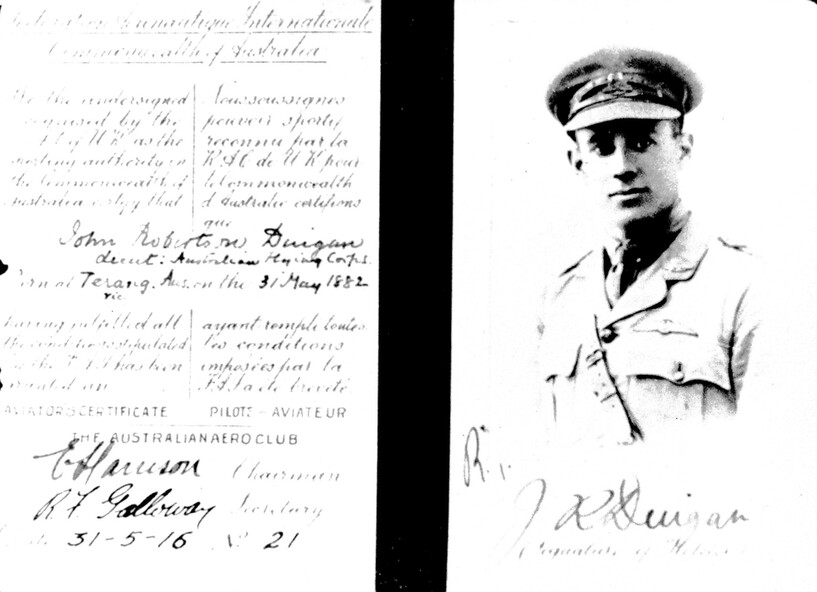 Aeronautique Internationale
Commonwealth of Australia
We the undersigned
recognised by the
R.A.C. of U.K. as the
sporting authority in
the Commonwealth of
Australia certify that
Nous soussignes
pouvoir sportif
reconnu par la
R.A.C de U K pour
le Commonwealth
d Australie certifions
que
John Robertson Duigan
Lieut: Australian Flying Corps.
Born at Terang. Aus. on the 31 May 1882
Vic
having fulfilled all
the conditions stipulated
by the F A I has been
granted an
ayant remple toutes
les conditions
imposées par la
F.A.I a été breveté
AVIATOR'S CERTIFICATE PILOTE - AVIATEUR
THE AUSTRALIAN AERO CLUB
E Harrison Chairman
R. F. Galloway Secretary
31-5-16 No 21
J R Duigan
Signature of Holder